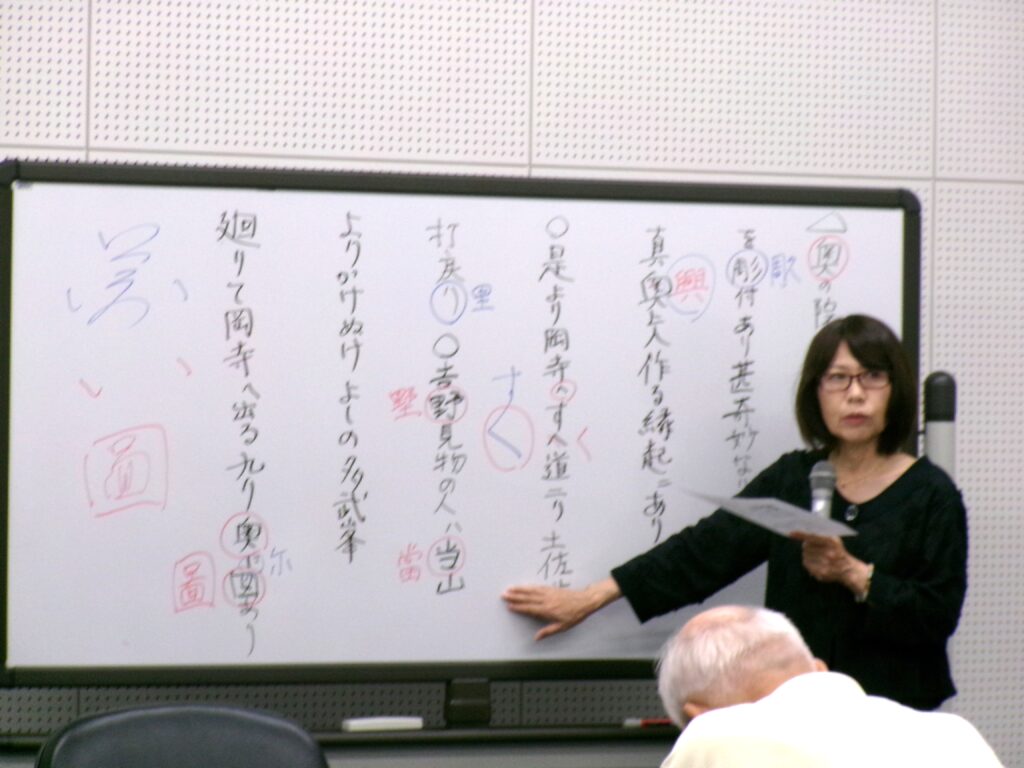 △奥の院
を彫付あり甚奇妙な
彫
真奥上人作る縁起ニあり
興
○是より岡寺へすへ道ニリ土佐
く
すく
打戻り
里
○吉野見物の人ハ当山
野
當
よりかけぬけよしの多武峯
廻りて岡寺へ出る九り奥に図あり
尓
圖
圖